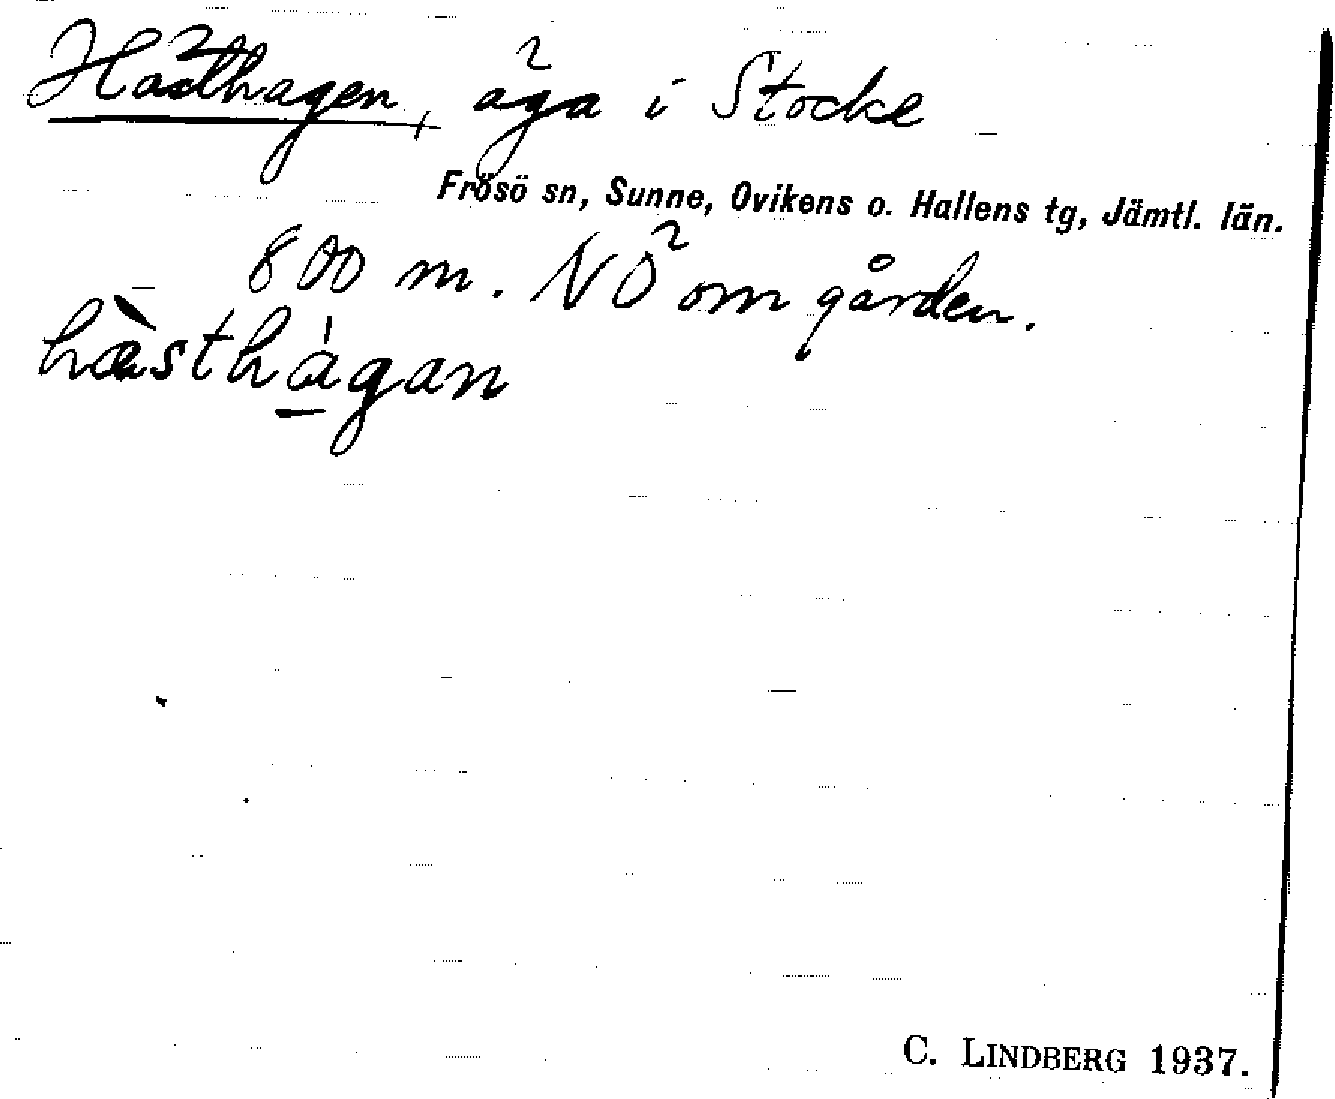 Hästhagen, äga i Stocke
Frösö sn, Sunne, Ovikens o. Hallens tg, Jämtl. län.
800 m. NÖ om gården.
hæ̀sthàgan
C. LINDBERG 1937.